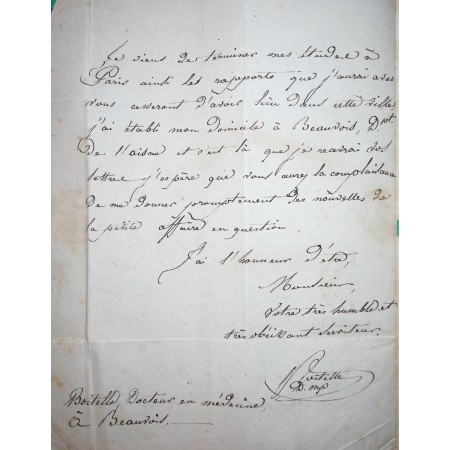 Je viens de terminer mes études à
Paris ainsi les rapports que j'aurai avec
vous cesseront d'avoir lieu dans cette ville
j'ai établi mon domicile à Beauvois, D.nt
de l'aisne et c'est là que je recevrai vos
lettres j'espère que vous aurez la complaisance
de me donner promptement des nouvelles de
la petite affaire en question.
J'ai l'honneur d'être,
Monsieur,
votre très humble et
très obéissant serviteur.
Boitelle
D. mp
Boitelle Docteur en médecine,
à Beauvois.